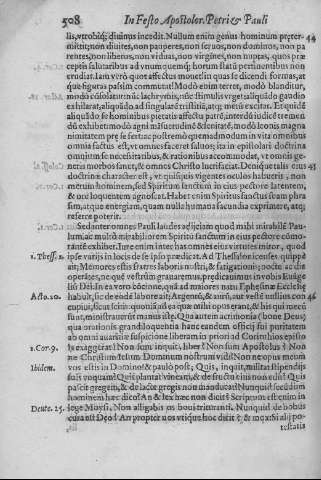 508 In Festo Apostolor. Petri & Pauli
lis, vtrobiq; diuinus incedit. Nullum enim genus hominum præter- 44
mittit; non diuites, non pauperes, non seruos, non dominos, non pa
rentes, non liberos, non viduas, non virgines, non nuptas, quos præ
ceptis salutaribus ad vnumquemq; horum statui pertinentibus non
erudiat. Iam verò quot affectus monet in quas se dicendi formas, at
que figuras passim commutat? Modò enim terret, modò blanditur,
modò consolatur; nũc lachrymis, nũc stimulis vrget: aliquãdo gaudio
exhilarat, aliquãdo ad singularẽ tristitiã, atq; mœrorẽ excitat. Et quidẽ
aliquãdo se hominibus pietatis affectu patrẽ, interdũ iudicẽ tremẽ
dũ exhibet: modò agni mãsuetudinẽ
nimitatem præ se fert: ac postremò quemadmodum in vita omnibus
omnia factus est, vt omnes faceret saluos; ita in epistolari doctrina
omnium se necessitatibus, & rationibus accommodat, vt omnis ge-
neris morbos sanet, & omnes Christo lucrifaciat. Deniq; talis eius 45
doctrinæ character est, vt quisquis vigentes oculos habuerit, non
merum hominem, sed Spiritum sanctum in eius pectore latentem,
& ore loquentem agnoscat. Habet enim Spiritus sanctus suam phra
sim, atque energiam, quam nulla humana facundia exprimere, atq;
referre poterit.
Sed anter omnes Pauli laudes adijciam quod mihi mirabilẽ Pau-
lum, ac multò mirabiliorem Spiritũ sanctum in eius pectore cõmo-
rantẽ exhibet. Iure enim inter has omnes eius virtutes miror, quod
1. Thess. 2. ipse varijs in locis de se ipso prædicat. Ad Thessalonicenses quippe
ait; Memores estis fratres laboris nostri, & fatigationis; nocte ac die
operantes, ne quem vestrûm grauaremus, prædicauimus in vobis Euãge
liũ Dei. In ea verò cõcione, quã ad maiores natu Ephesinæ Ecclesiæ
Acto. 20. habuit, sic de eodẽ labore ait; Argentũ, & aurũ, aut vestẽ nullius con 46
cupiui, sicut scitis: quoniã ad ea quæ mihi opus erant, & his qui mecũ
sunt, ministrauerũt manus istæ. Qua autem acrimonia (bone Deus)
qua orationis grandiloquentia hanc eandem officij sui puritatem
ab omni auaritiæ suspicione liberam in priori ad Corinthios episto
1. Cor. 9. la exaggerat? Non sum inquit, liber? Non sum Apostolus? Non
ne Christum Iesum Dominum nostrum vidi? Non ne opus meum
Ibidem. vos estis in Domino? & paulò post; Quis, inquit, militat stipendijs
suis vnquam? Quis plantat vineam, & de fructu eius non edit? Quis
pascit gregem, & de lacte gregis non manducat? Nunquid secũdum
hominem hæc dico? An & lex hæc non dicit? Scriptum est enim in
Deute. 25. lege Moysi. Non alligabis os boui trituranti. Nunquid de bobus
cura est Deo? An propter nos vtique hoc dicit? & mox: Si alij po-
testatis